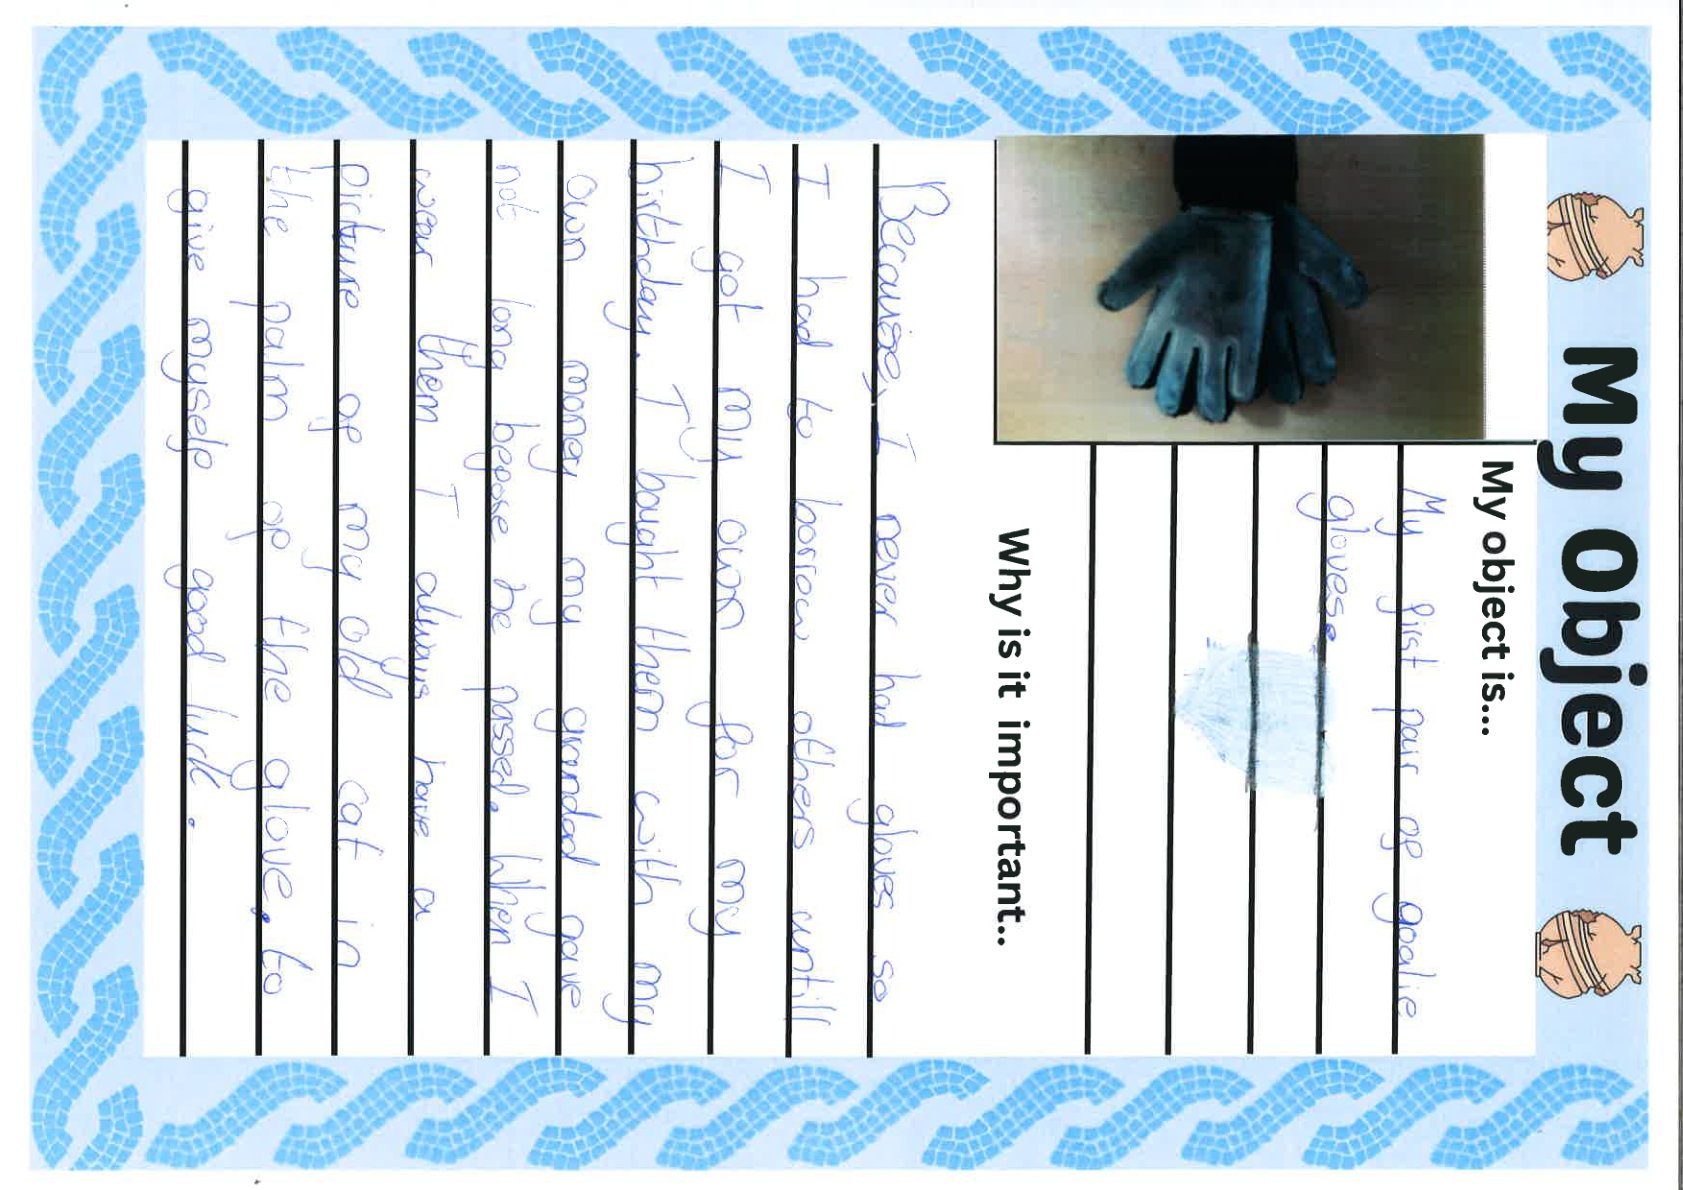 My Object
My object is...
My first pair of goalie
gloves.
Why is it important..
Because, I never had gloves so
I had to borrow others untill
I got my own for my
birthday. I bought them with my
own money my grandad gave
not long before he passed. When I
wear them I always have a
picture of my old cat in
the palm of the glove. to
give myself good luck.